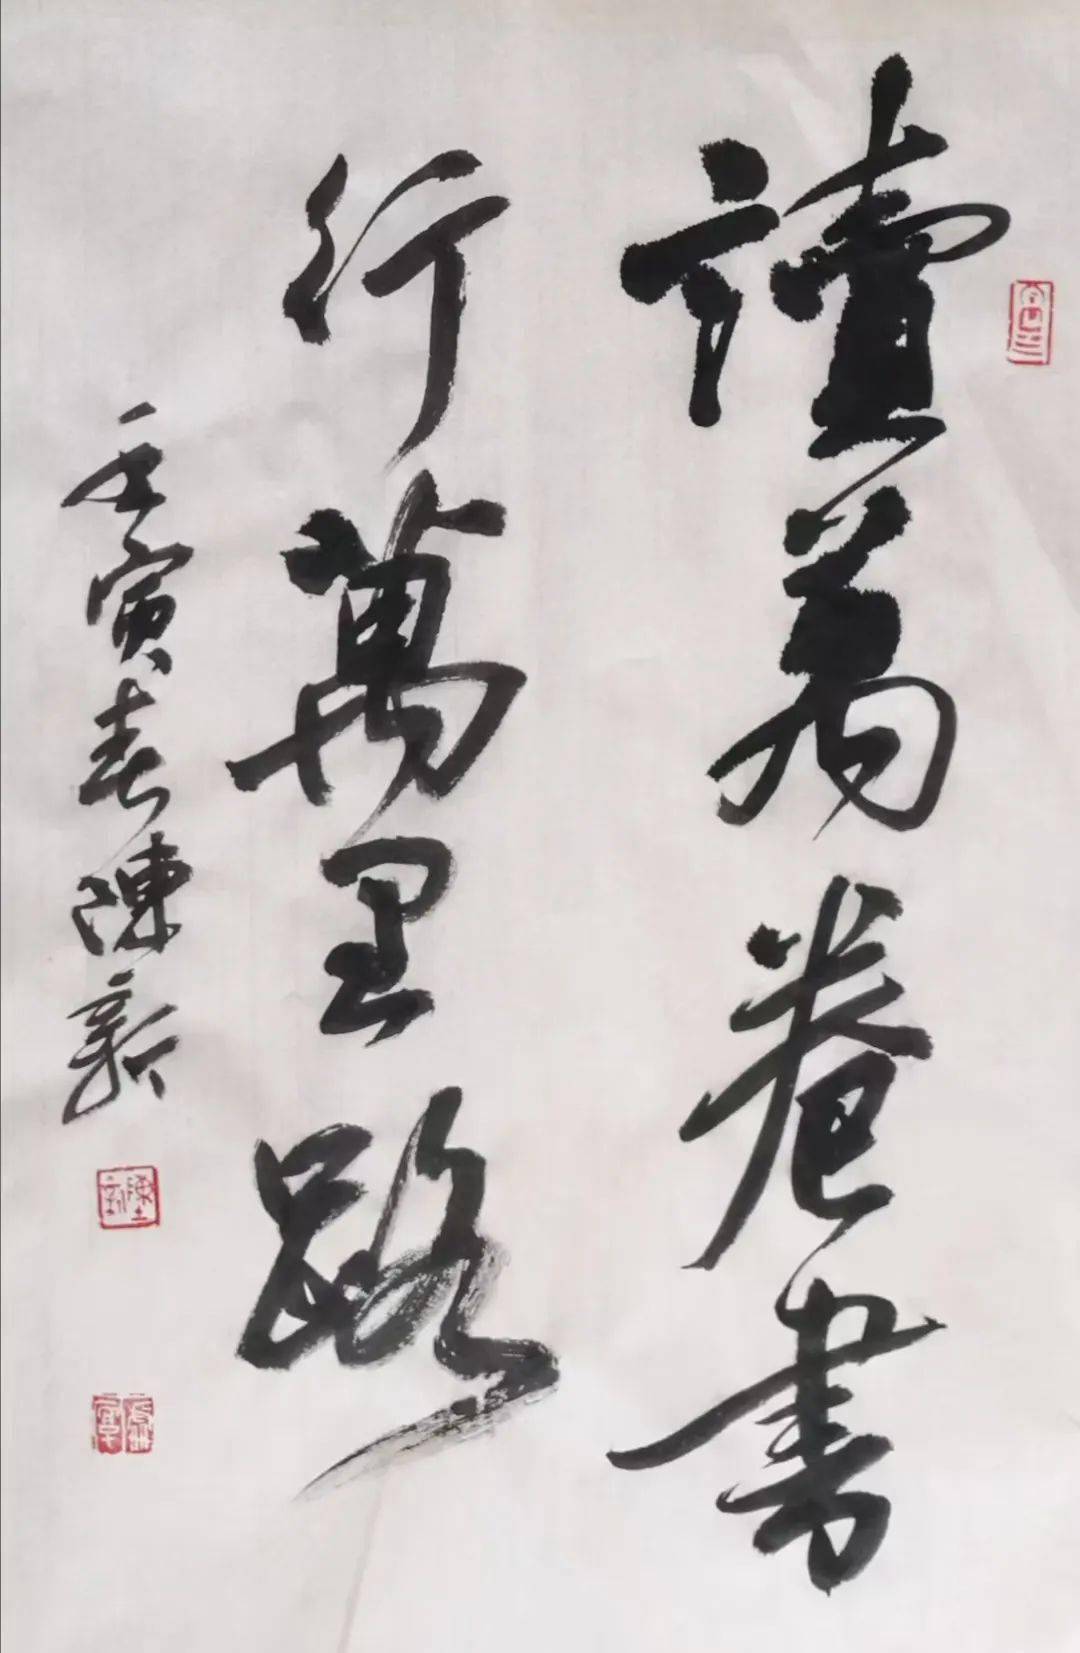 讀萬卷書
行萬里路
壬寅春陳新